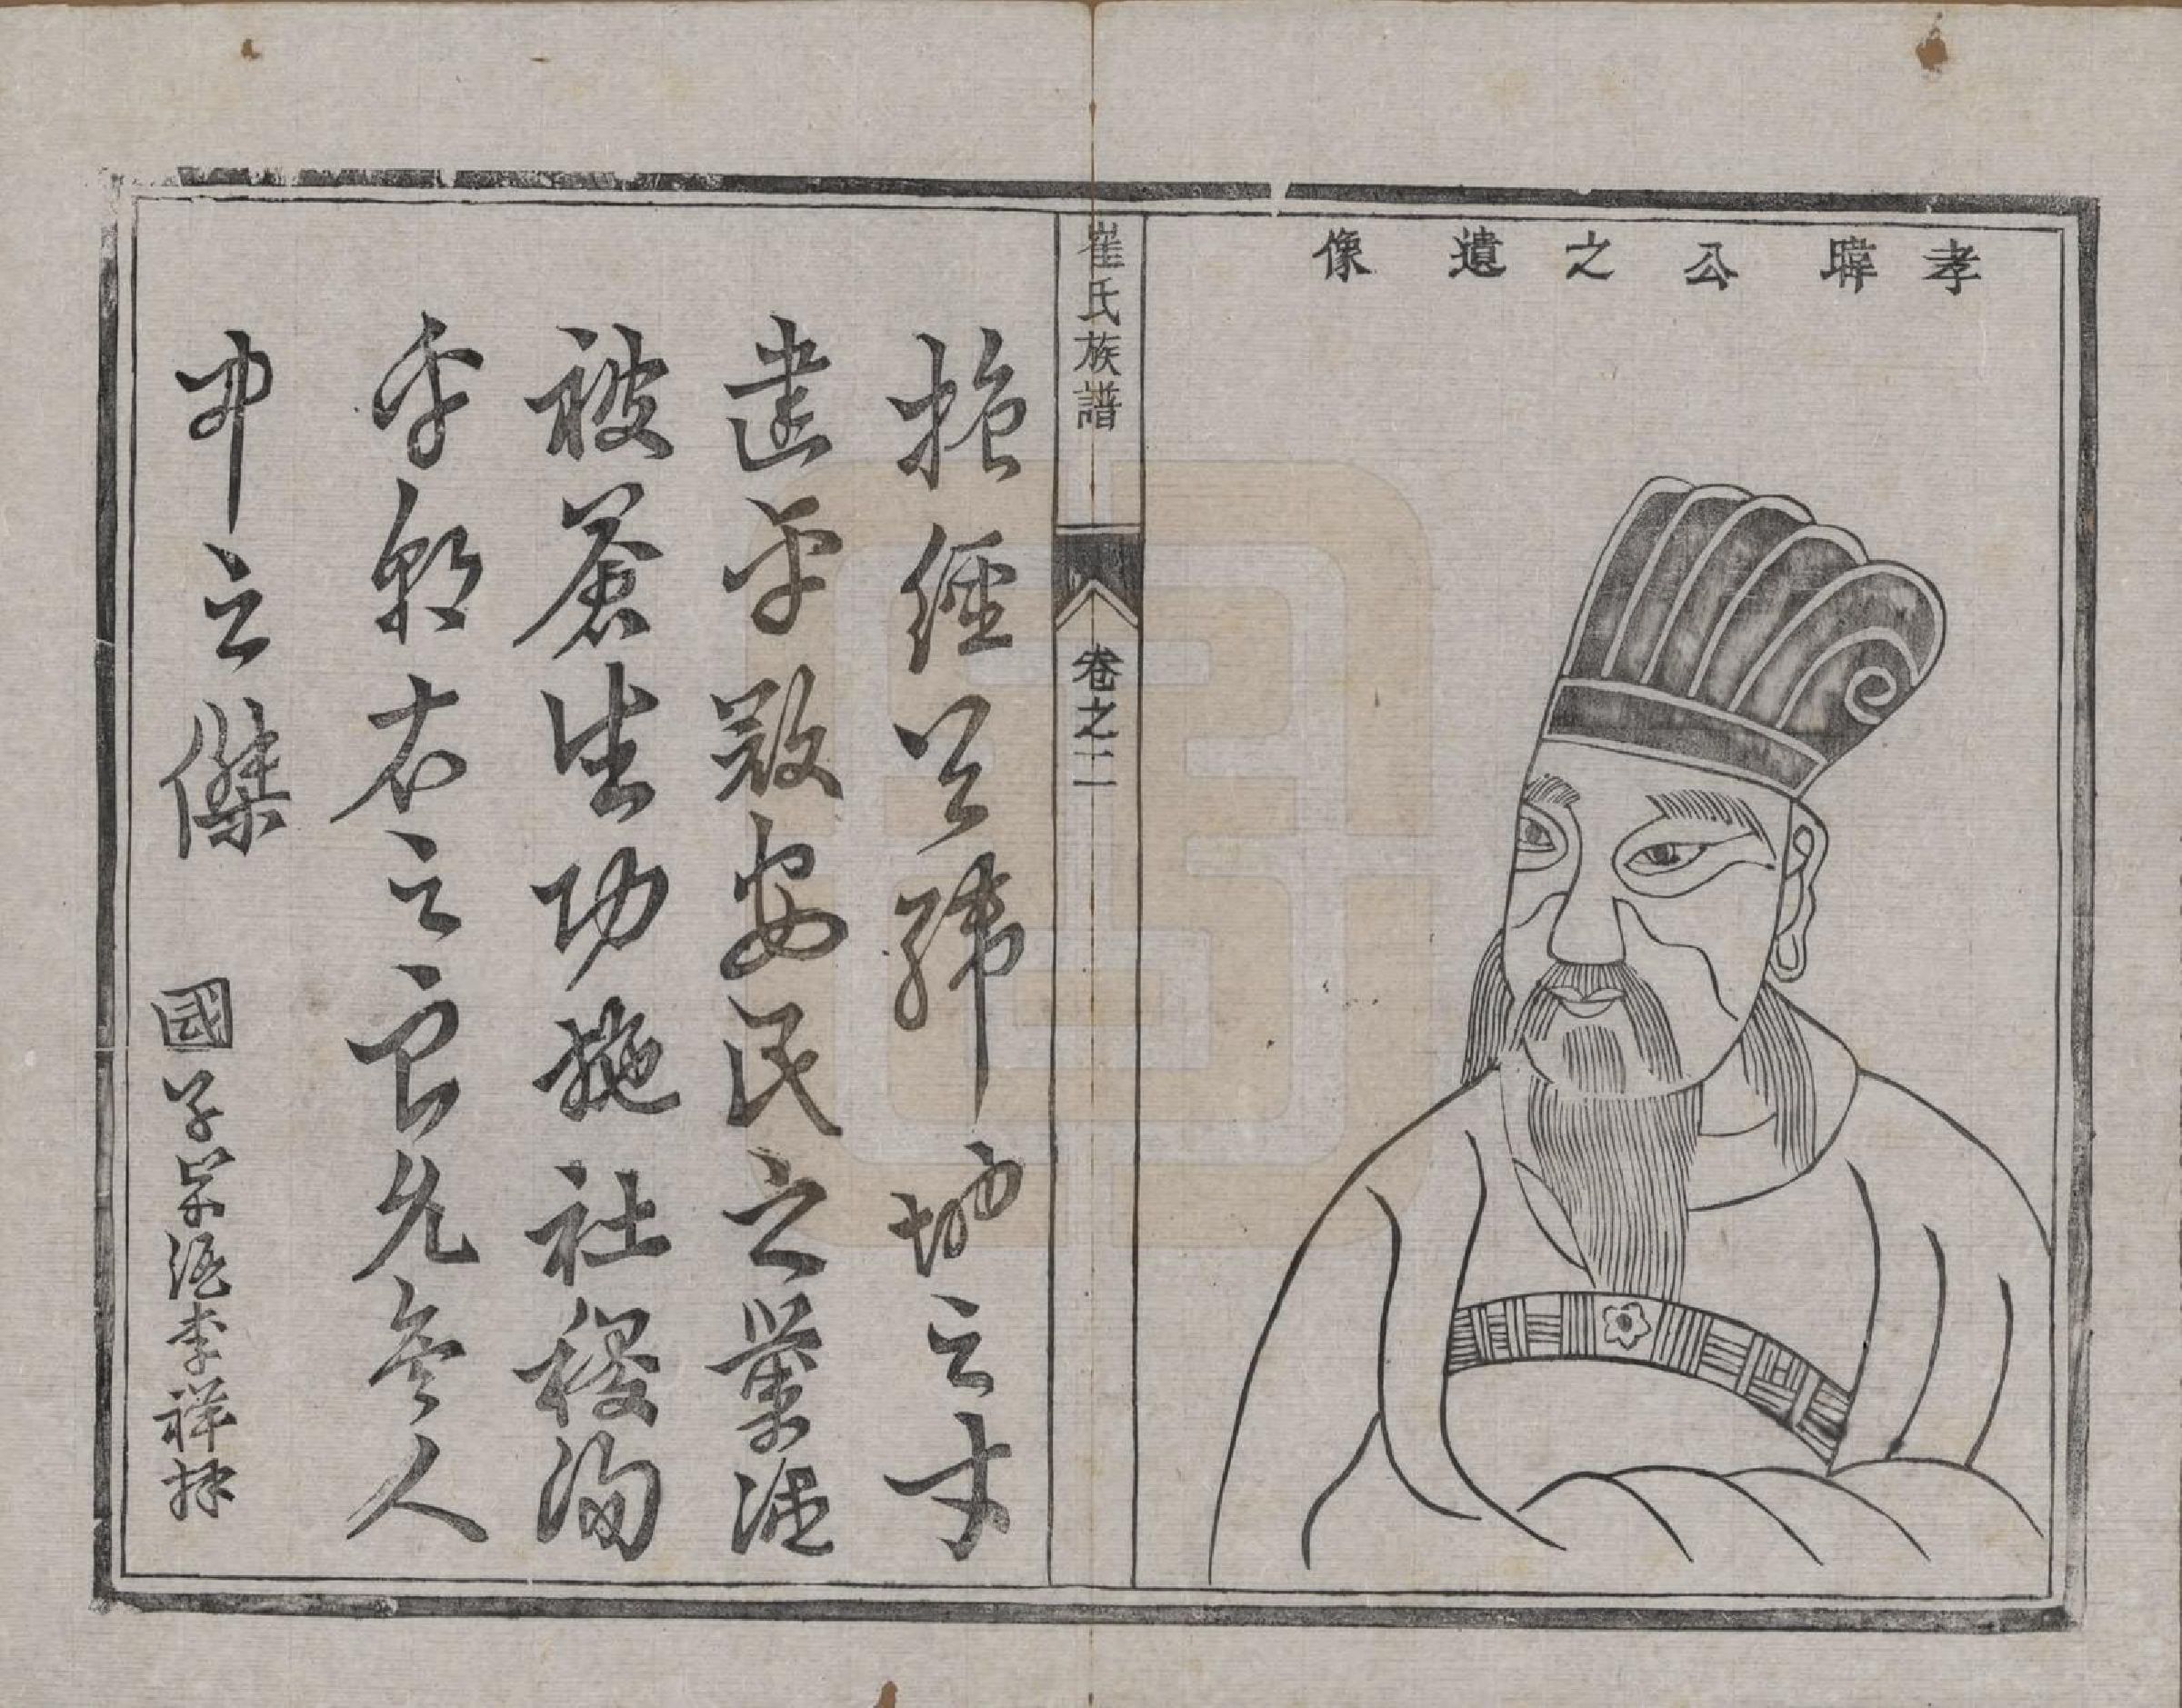 孝暐公之遺像
崔氏族譜
卷之二
抱經天緯地之才
建平敵安民之業德
被蒼生功施社稷洵
乎朝右之良允矣人
中之傑
國子祭酒李祥拜